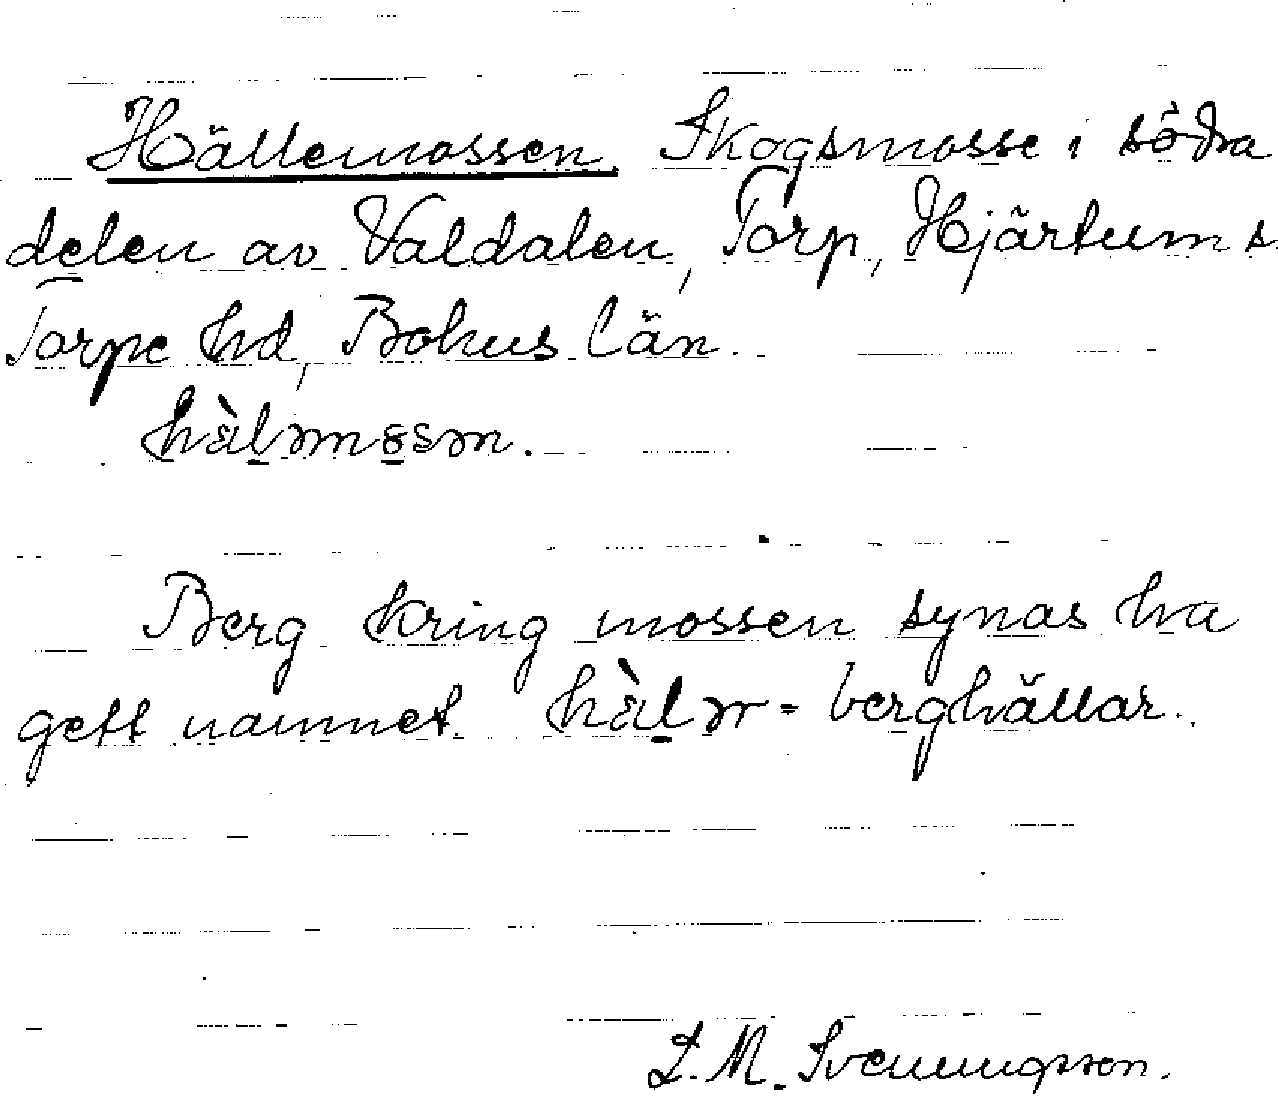 Hällemossen. Skogsmosse i södra
delen av Valdalen, Torp, Hjärtum s.
Torpe hd, Bohus län.
hàlmosm.
Berg kring mossen synas ha
gett namnet. hàlər = berghällar.
L. M. Svenungsson.